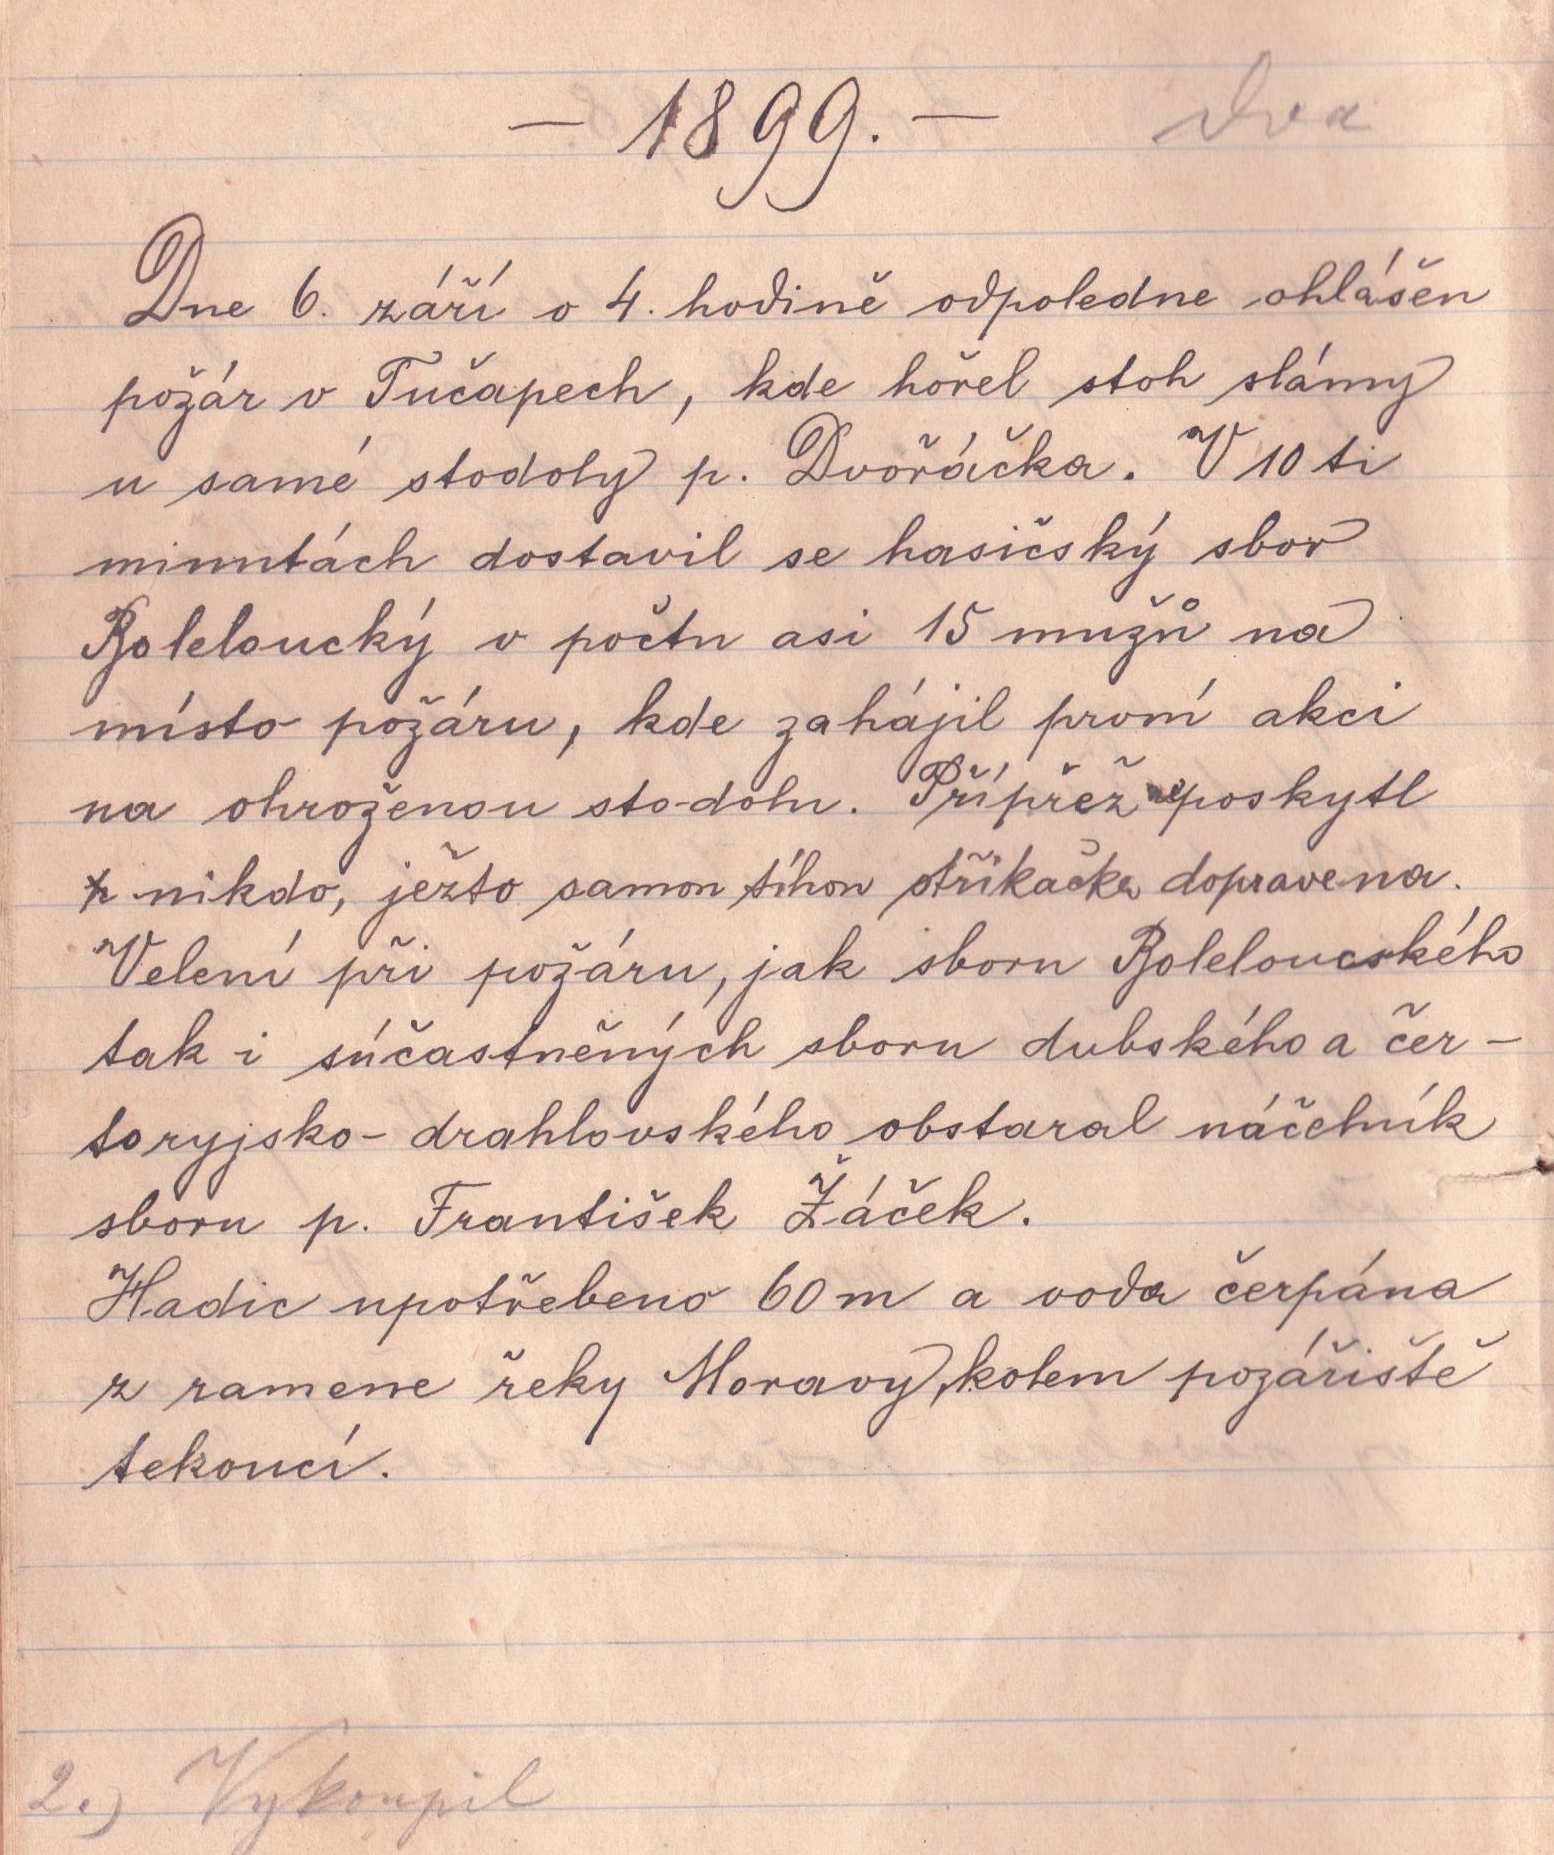 – 1899. –
Dva
Dne 6. září o 4. hodině odpoledne ohlášen
požár v Tučapech, kde hořel stoh slámy
u samé stodoly p. Dvořáčka. V 10 ti
minutách dostavil se hasičský sbor
Boleloucký v počtu asi 15 mužů na
místo požáru, kde zahájil první akci
na ohroženou stodolu. Přípřež neposkytl
nikdo, ježto samou tíhou stříkačka dopravena.
Velení při požáru, jak sboru Boleloucského
tak i súčastněných sboru dubského a čer-
toryjsko-drahlovského obstaral náčelník
sboru p. František Žáček.
Hadic upotřebeno 60 m a voda čerpána
z ramene řeky Moravy, kolem požářiště
tekoucí.
2.) Vykoupil